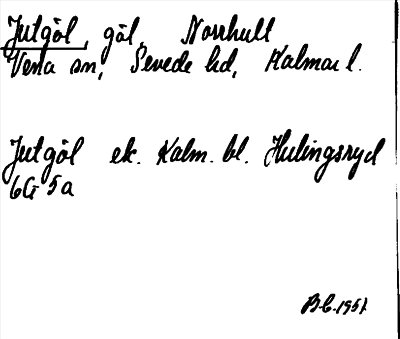 Jutgöl, göl, Norrhult
Vena sn, Sevede hd, Kalmar l.
Jutgöl ek. Kalm. bl. Hulingsryd
6G 5a